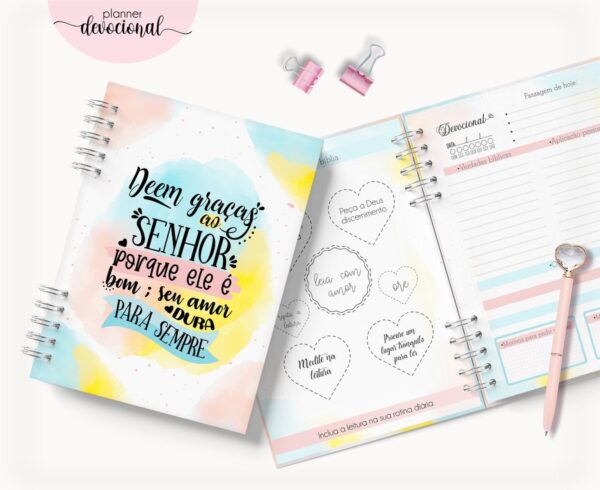 planner
devocional
Deem graças
ao
SENHOR
porque ele é
bom; seu amor
DURA
PARA SEMPRE
bíblia
Peça a Deus
discernimento
leia com
amor
ore
Medite na
leitura
Procure um
lugar tranquilo
para ler
Inclua a leitura na sua rotina diária.
Devocional
Passagem de hoje:
•Verdades bíblicas
•Aplicação